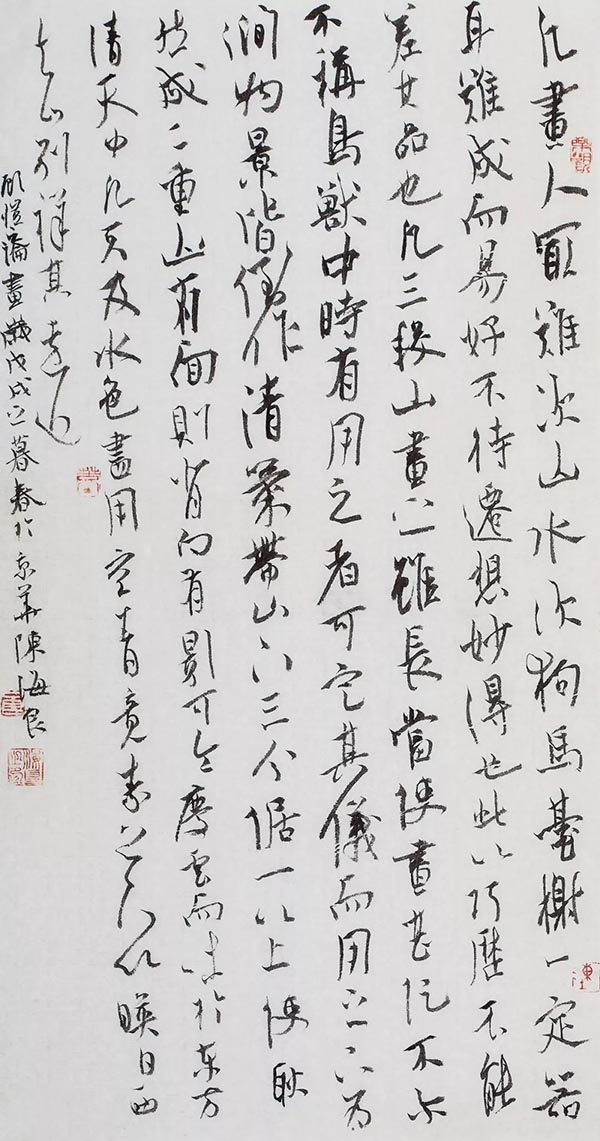 凡畫人冣難次山水次狗馬臺榭一定器
耳難成而易好不待遷想妙得也此以巧歷不能
差其品也凡三段山畫之雖長當使畫甚促不尔
不稱鳥獸中時有用之者可定其儀而用之下為
澗物景皆倒作清氣帶山下三分倨一以上使耿
然成二重山有面則背向有影可令慶云而吐於东方
清天中凡天及水色盡用空青竟素上下以暎日西
去山別詳其遠近
顾愷論畫歲戊戌之暮春於京華陳海良